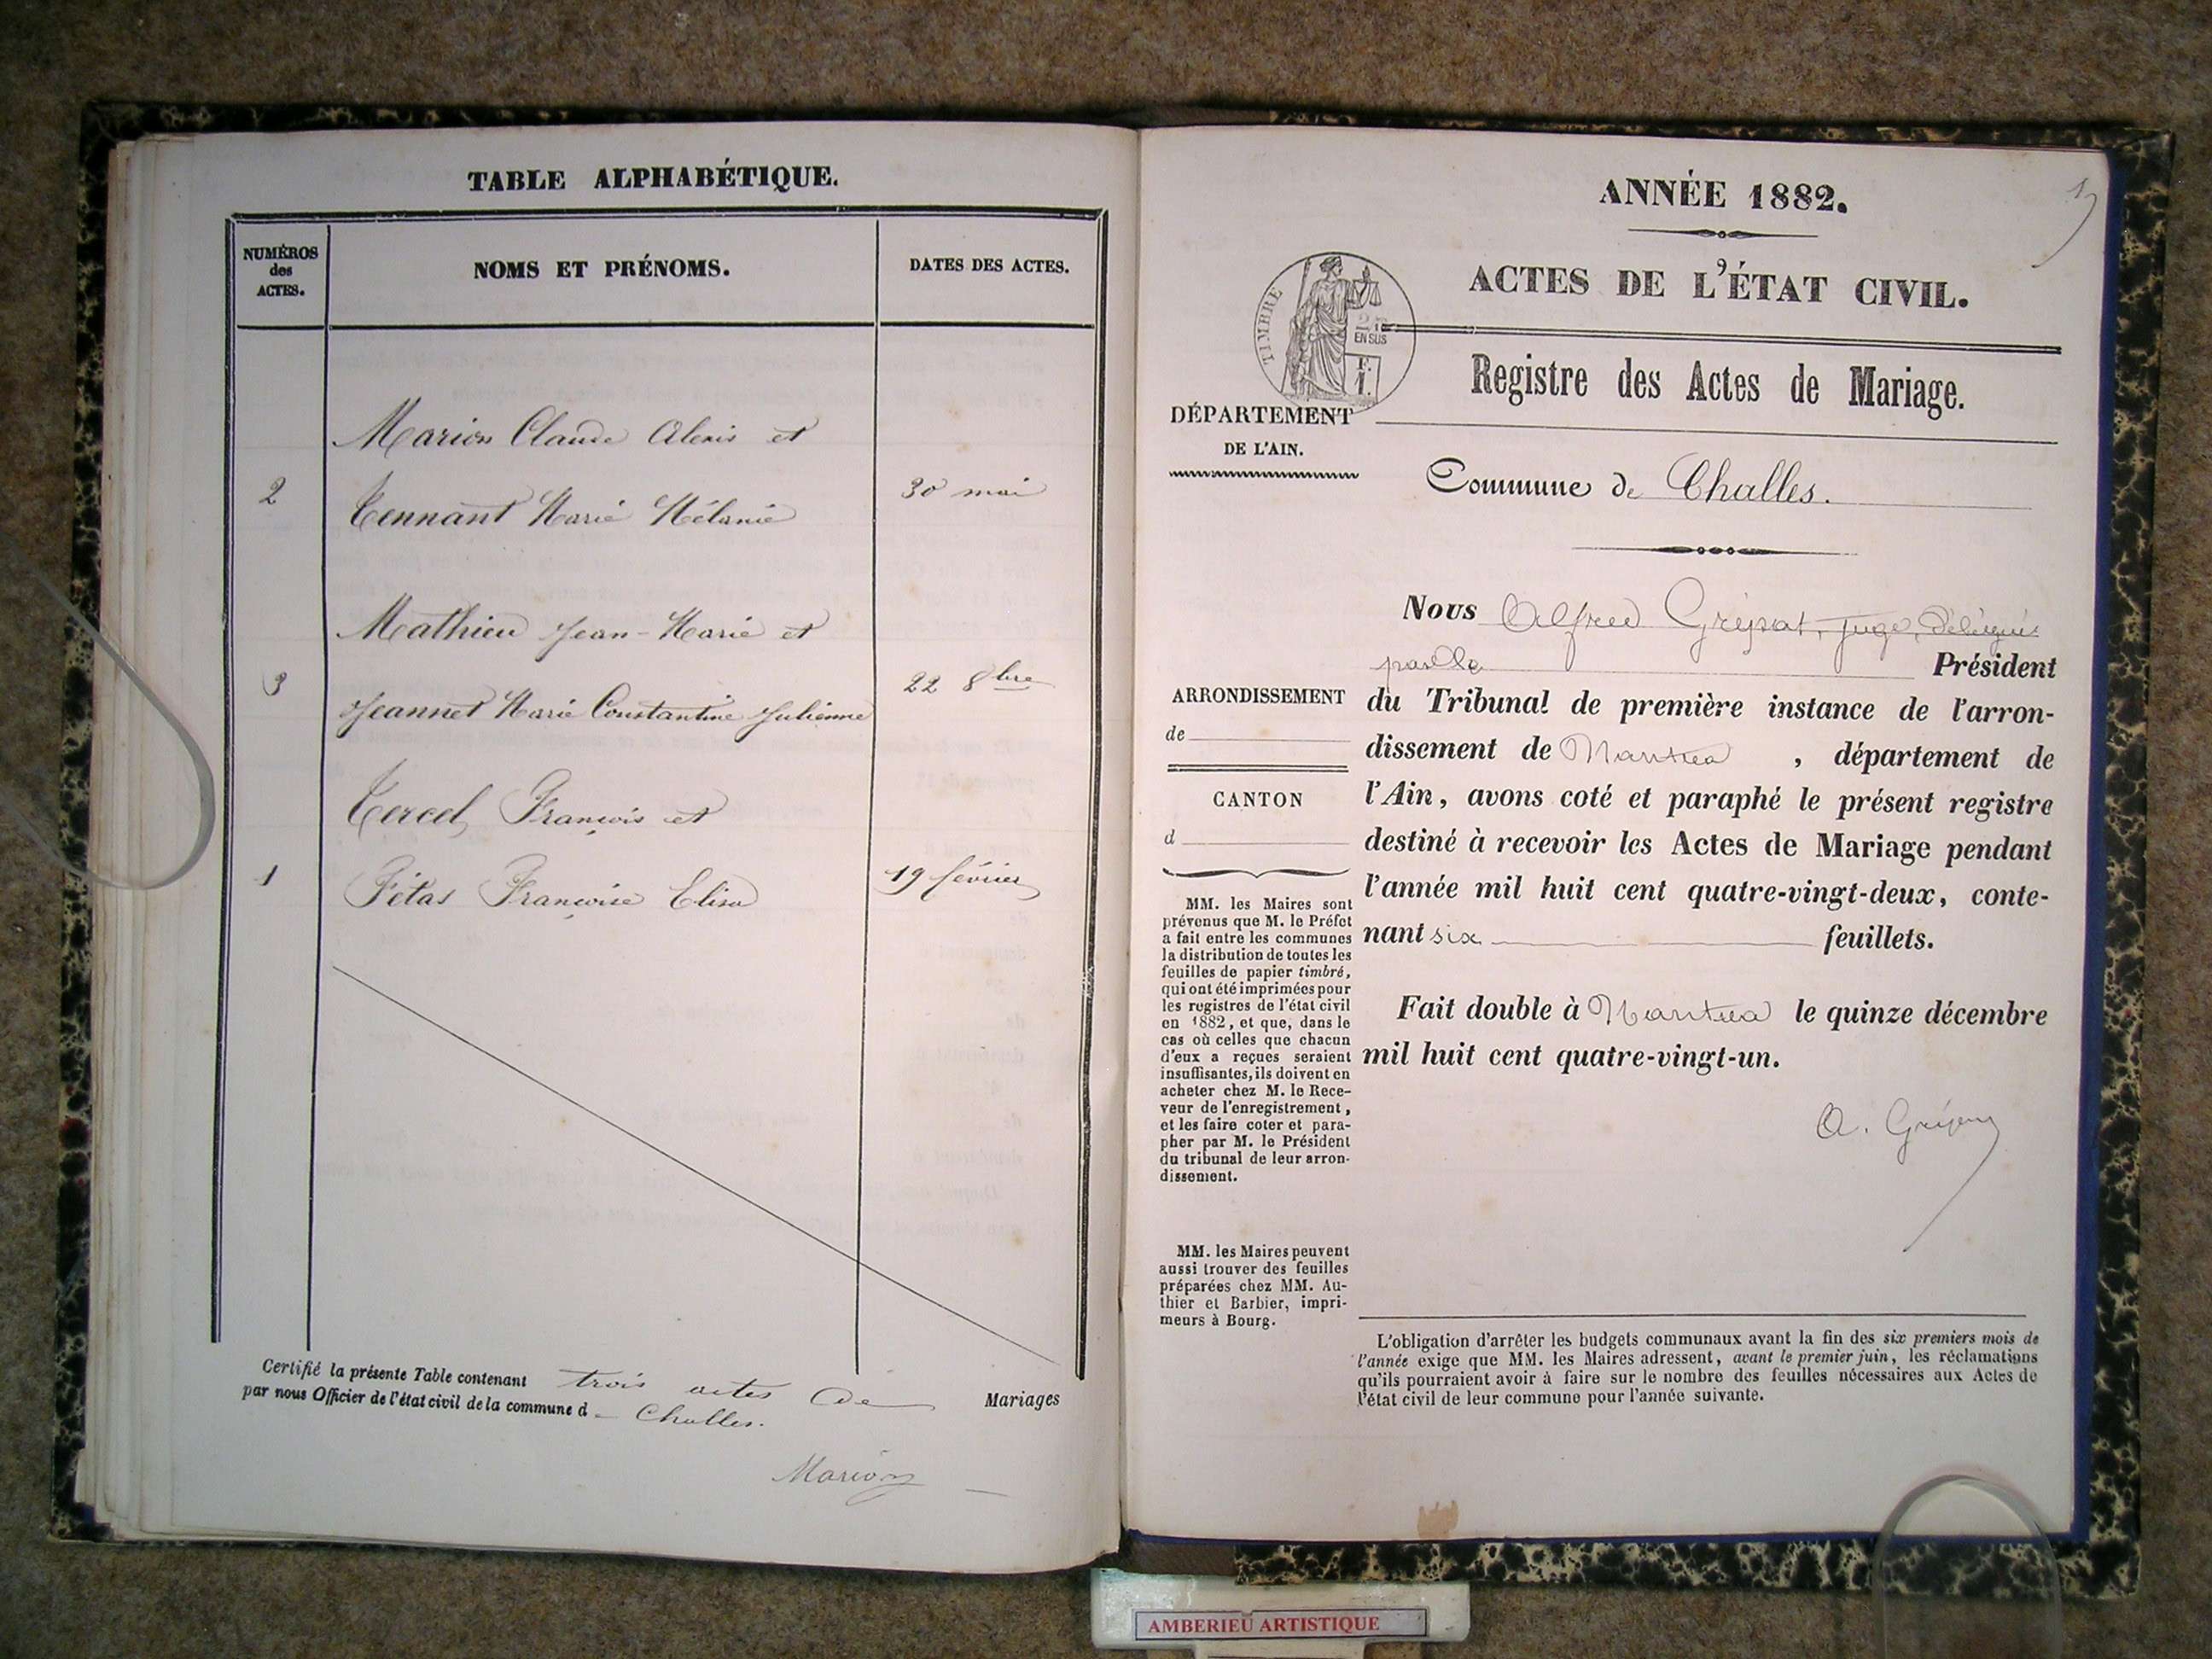 TABLE ALPHABÉTIQUE.
NUMÉROS
des
ACTES.
NOMS ET PRÉNOMS.
DATES DES ACTES.
Marion Claude Alexis et
2
Tennant Marie Mélanie
30 mai
Mathieu Jean-Marie et
3
Jeannet Marie Constantine Julienne
22 8bre
Tercel François et
1
Fétas Françoise Elisa
19 février
Certifié la présente Table contenant trois actes de Mariages
par nous Officier de l'état civil de la commune d Challes.
Marion
ANNÉE 1882.
ACTES DE L'ÉTAT CIVIL.
TIMBRE
EN SUS
F.
1.
Registre des Actes de Mariage.
DÉPARTEMENT
DE L'AIN.
Commune de Challes.
Nous Alfred Grépat, juge, délégué
par le Président
du Tribunal de première instance de l'arron-
dissement de Nantua, département de
l'Ain, avons coté et paraphé le présent registre
destiné à recevoir les Actes de Mariage pendant
l'année mil huit cent quatre-vingt-deux, conte-
nant six feuillets.
Fait double à Nantua le quinze décembre
mil huit cent quatre-vingt-un.
ARRONDISSEMENT
de
CANTON
d
MM. les Maires sont
prévenus que M. le Préfet
a fait entre les communes
la distribution de toutes les
feuilles de papier timbré,
qui ont été imprimées pour
les registres de l'état civil
en 1882, et que, dans le
cas où celles que chacun
d'eux a reçues seraient
insuffisantes, ils doivent en
acheter chez M. le Rece-
veur de l'enregistrement,
et les faire coter et para-
pher par M. le Président
du tribunal de leur arron-
dissement.
MM. les Maires peuvent
aussi trouver des feuilles
préparées chez MM. Au-
thier et Barbier, impri-
meurs à Bourg.
L'obligation d'arrêter les budgets communaux avant la fin des six premiers mois de
l'année exige que MM. les Maires adressent, avant le premier juin, les réclamations
qu'ils pourraient avoir à faire sur le nombre des feuilles nécessaires aux Actes de
l'état civil de leur commune pour l'année suivante.
AMBERIEU ARTISTIQUE